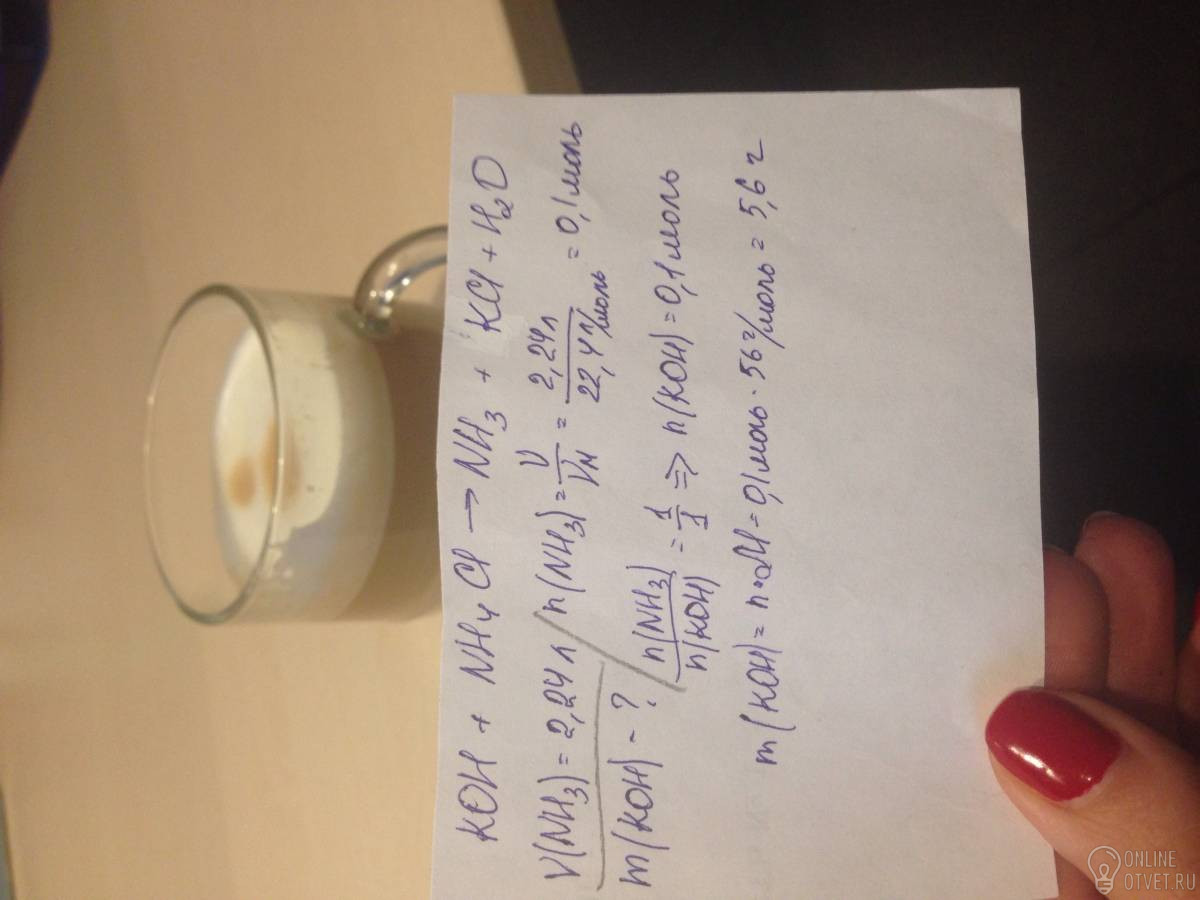 KOH + NH4Cl → NH3 + KCl + H2O
V(NH3) = 2,24 л
n(NH3) = V/Vм = 2,24 л / 22,4 л/моль = 0,1 моль
m(KOH) - ?
n(NH3)/n(KOH) = 1/1 => n(KOH) = 0,1 моль
m(KOH) = n·M = 0,1 моль · 56 г/моль = 5,6 г
ONLINE
OTVET.RU